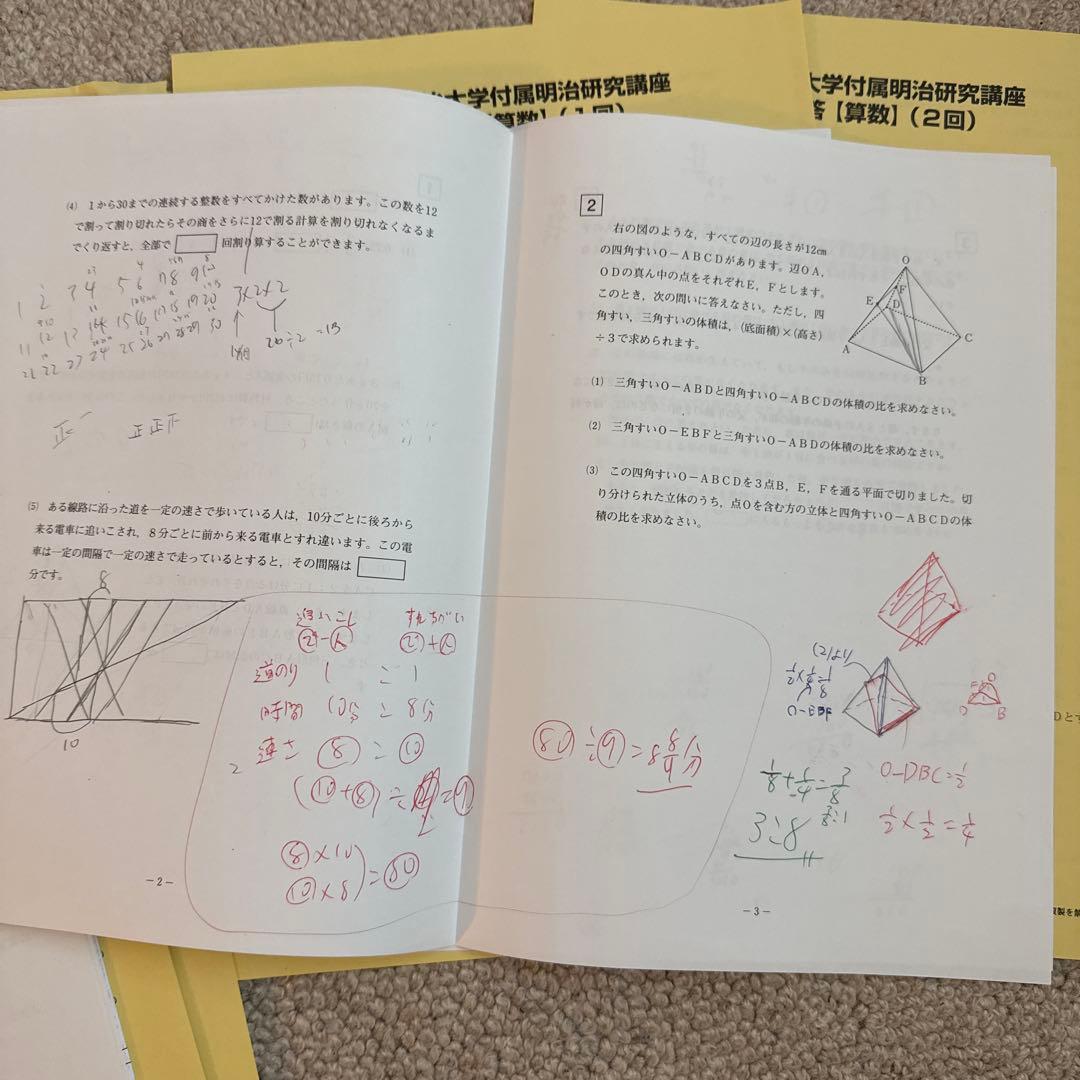 大学付属明治研究講座
【算数】(1回)
大学付属明治研究講座
答【算数】(2回)
(4) 1から30までの連続する整数をすべてかけた数があります。この数を12
で割って割り切れたらその商をさらに12で割る計算を割り切れなくなるま
でくり返すと、全部で 回割り算することができます。
3×2×2
26÷2=13
正正下
(5) ある線路に沿った道を一定の速さで歩いている人は、10分ごとに後ろから
来る電車に追いこされ、8分ごとに前から来る電車とすれ違います。この電
車は一定の間隔で一定の速さで走っているとすると、その間隔は
分です。
8
10
追いこし すれちがい
道のり 1 : 1
時間 10分 : 8分
速さ ⑧ : ⑩
(⑩+⑧)÷2=⑨
⑧×10
⑩×8
=80
80÷⑨=8 8/9分
-2-
2
右の図のような、すべての辺の長さが12cm
の四角すいO-ABCDがあります。辺OA、
ODの真ん中の点をそれぞれE、Fとします。
このとき、次の問いに答えなさい。ただし、四
角すい、三角すいの体積は、(底面積)×(高さ)
÷3で求められます。
O
E
F
D
A
C
B
(1) 三角すいO-ABDと四角すいO-ABCDの体積の比を求めなさい。
(2) 三角すいO-EBFと三角すいO-ABDの体積の比を求めなさい。
(3) この四角すいO-ABCDを3点B、E、Fを通る平面で切りました。切
り分けられた立体のうち、点Oを含む方の立体と四角すいO-ABCDの体
積の比を求めなさい。
(2)より
1/2×1/4=1/8
O-EBF
O
F
D
B
1/8+1/4=3/8
3/8:1
3:8
O-DBC=1/2
1/2×1/2=1/4
-3-